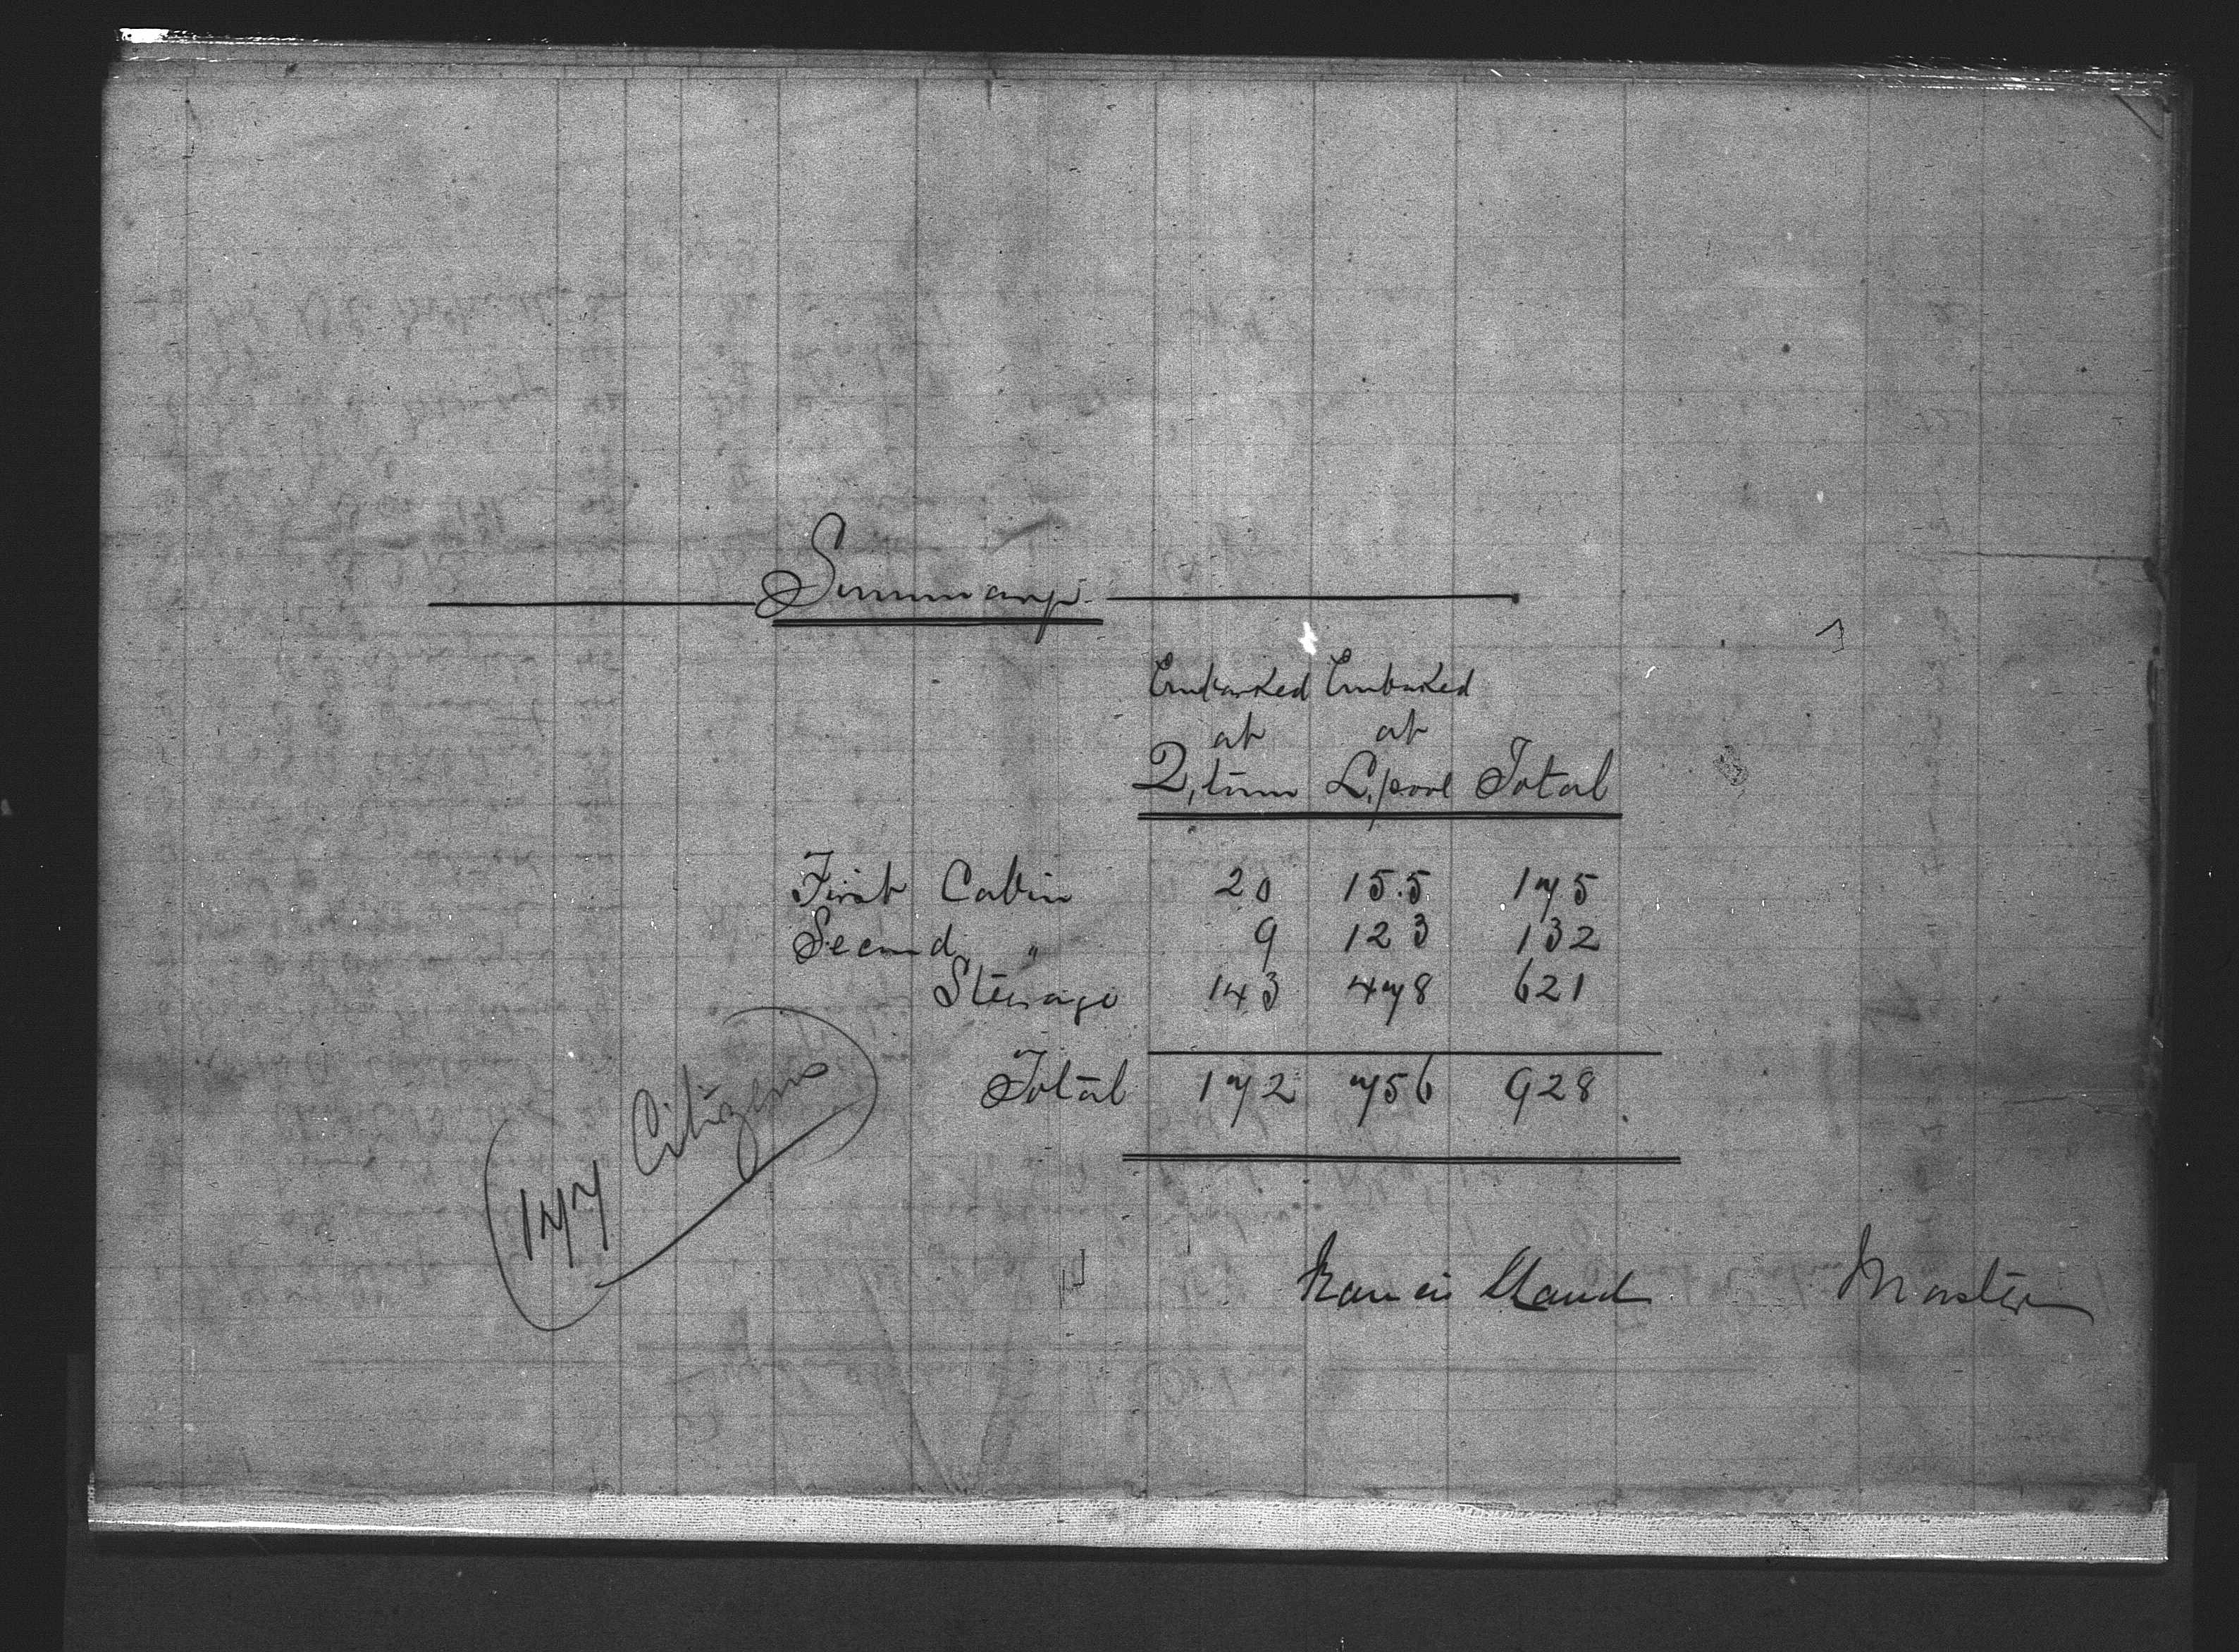 Summary
Embarked Embarked
at at
Q,town L,pool Total
First Cabin 20 155 175
Second " 9 123 132
Steerage 143 478 621
Total 172 756 928
177 Citizens
Master